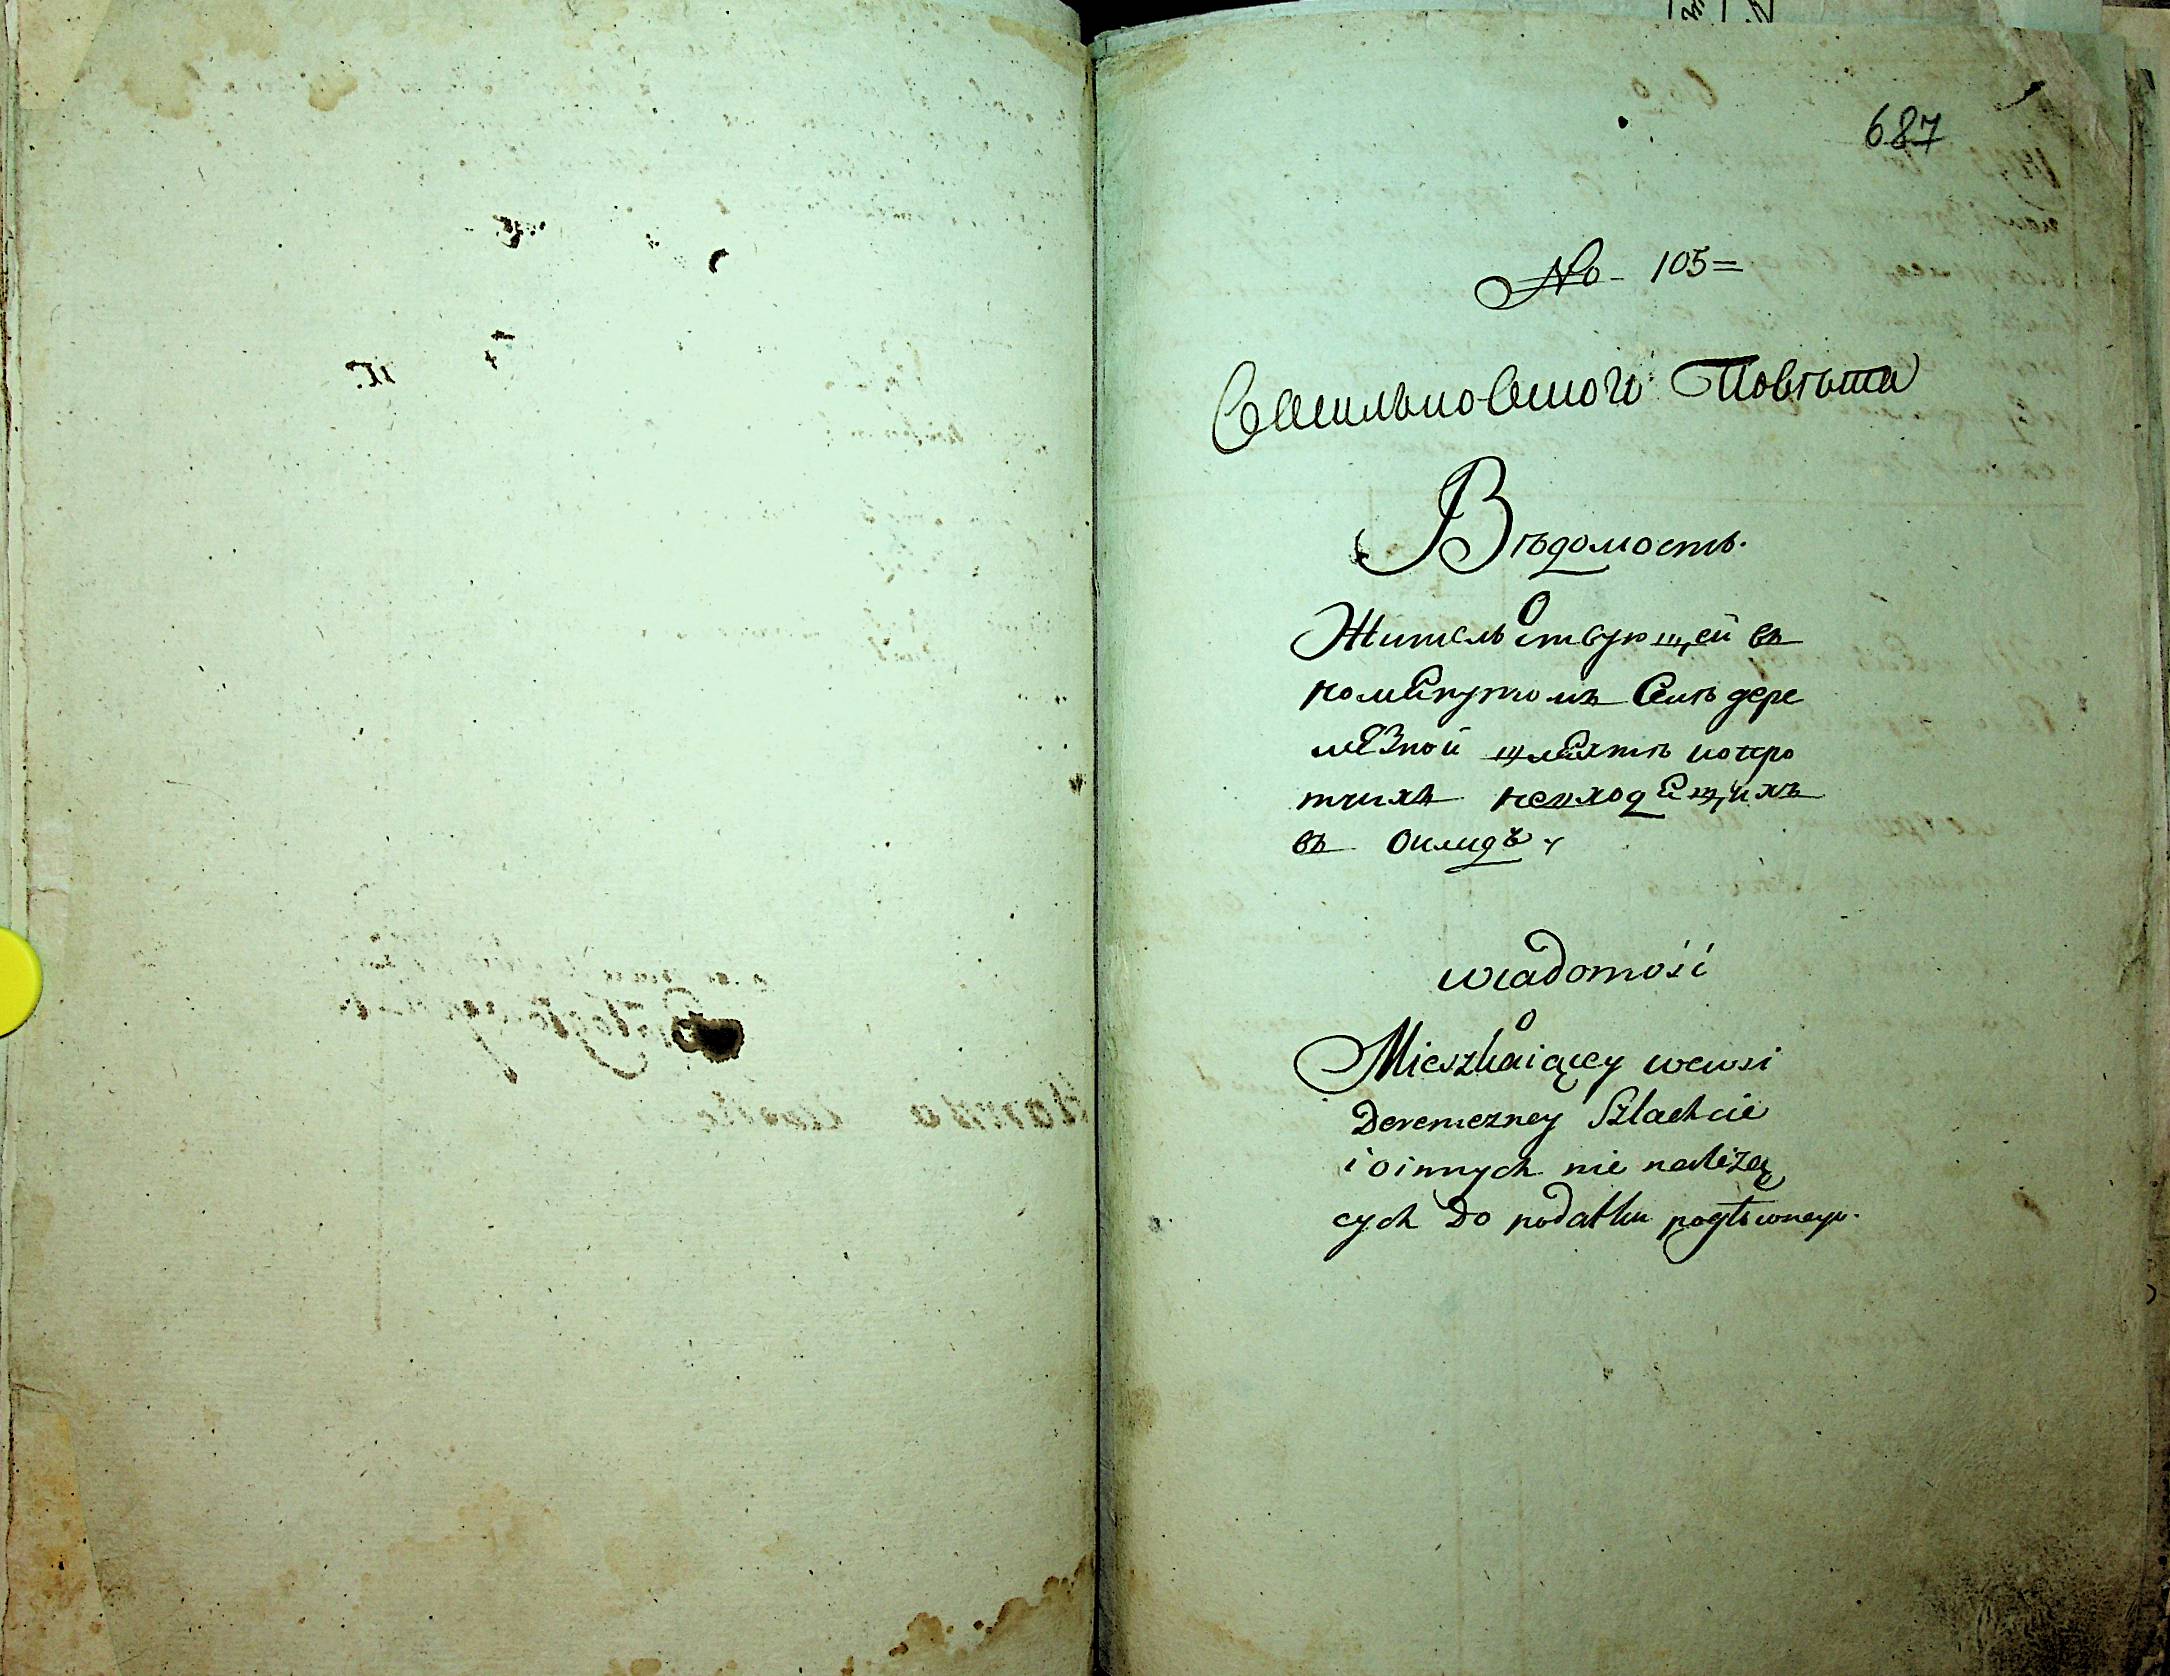 687
No 105=
Васильковского Повѣта
Вѣдомость.
О
Жительствующей въ
помянутомъ Селѣ дере
мезной шляхтѣ ипро
тчихъ невходящихъ
въ окладъ
wiadomość
O
Mieszkaiącey wewsi
Deremezney Szlachcie
i o innych nie należą
cych Do podatku pogłownego.